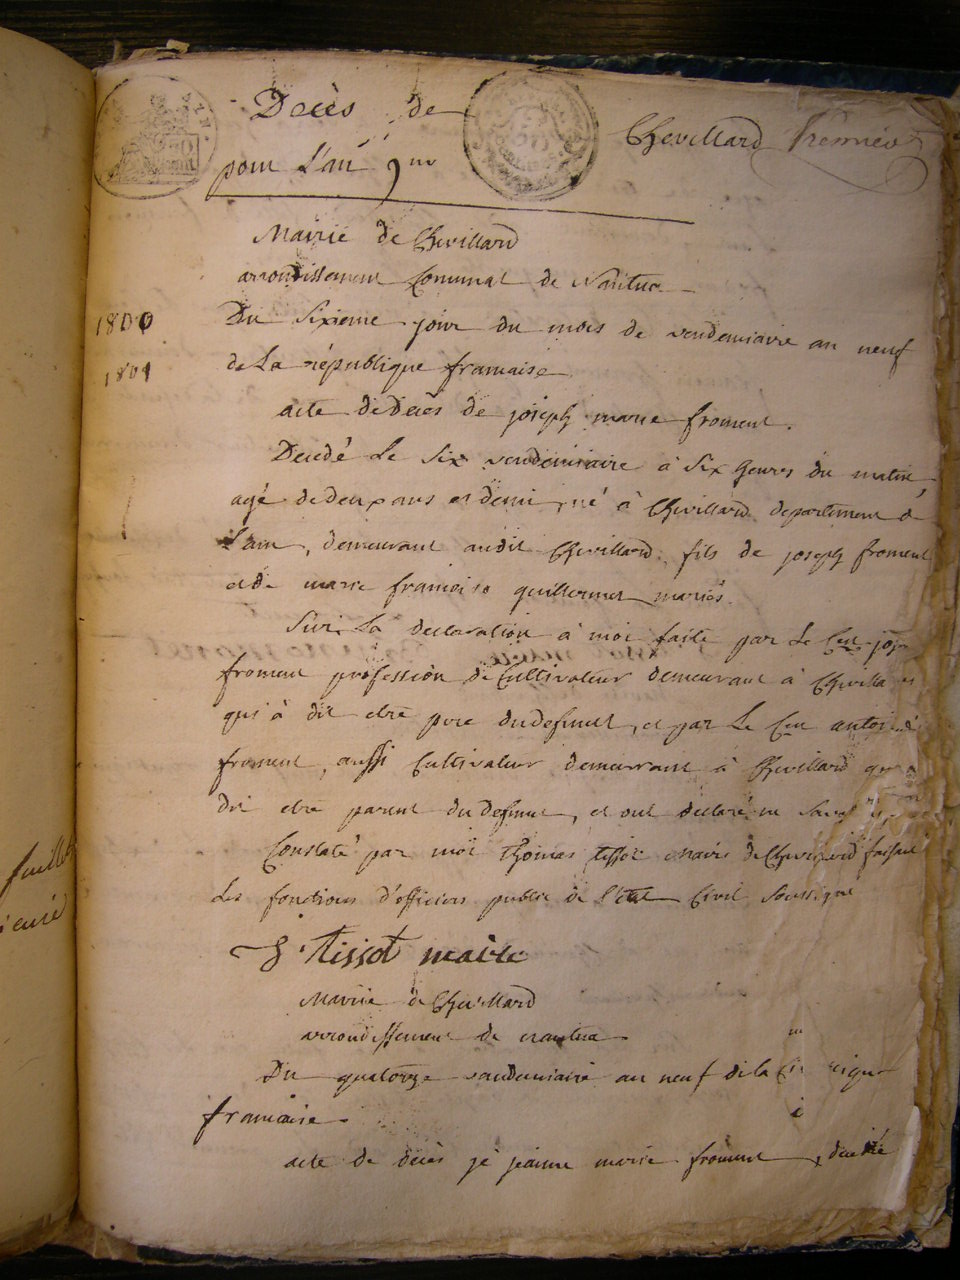 Décès de Chevillard premier
pour L'an 9me
Mairie de Chevillard
arrondissement Communal de Nantua
1800
Du Sixieme jour du mois de vendemiaire an neuf
1801
de La république francaise
acte de Decès de joseph marie froment.
Decedé Le Six vendemiaire à Six heures du matin,
agé de deux ans et demi, né à Chevillard departement de
L'ain, demeurant audit Chevillard, fils de joseph froment
et de marie francoise guillermet mariés.
Sur La declaration à moi faite par Le Cen
froment profession de Cultivateur demeurant à
qui à dit etre pere du defunt, et par Le Cen
froment, aussi Cultivateur demeurant à Chevillard
dit etre parent du defunt, et ont declaré ne
Constaté par moi thomas tissot maire de Chevillard faisant
Les fonctions d'officier public de l'état Civil Soussigné
tissot maire
Mairie de Chevillard
arrondissement de nantua
Du quatorze vendemiaire an neuf de la
francaise
acte de décès de jeanne marie froment, décédé